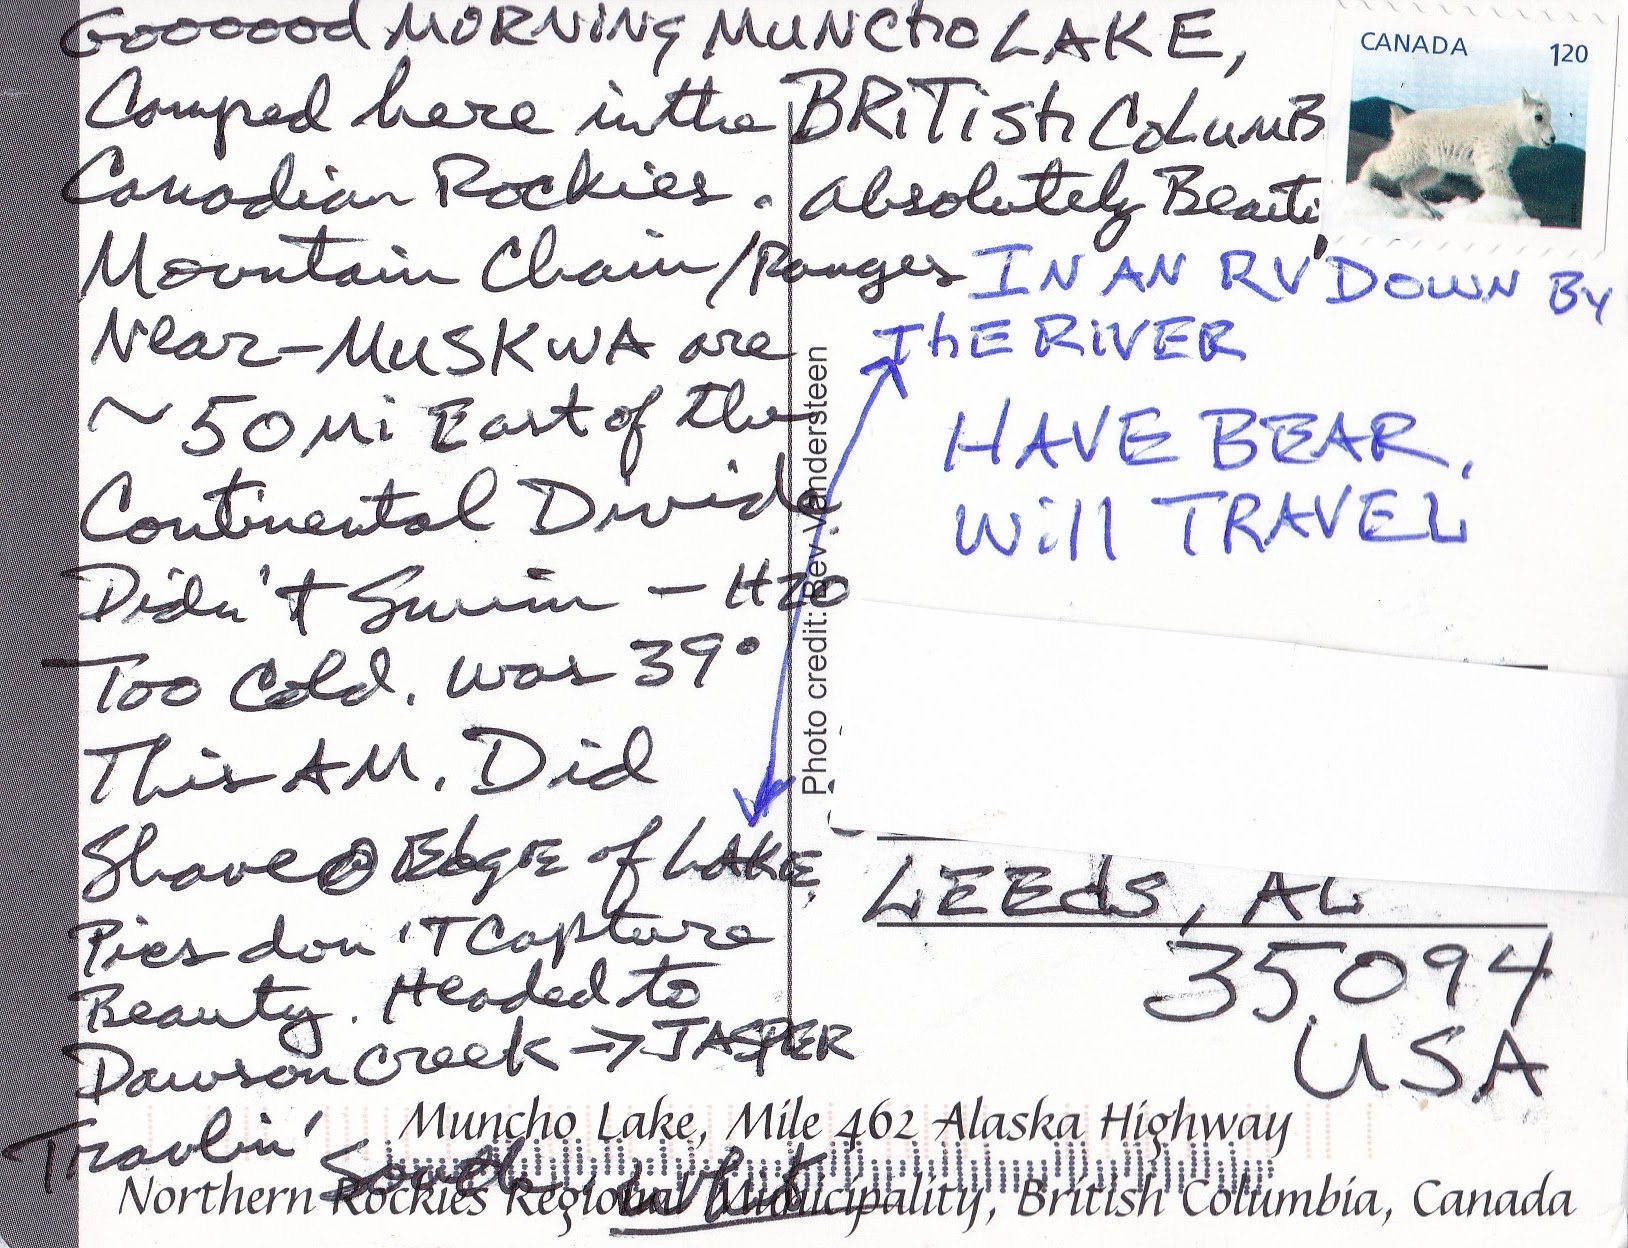 Goooood MORNING MUNCHO LAKE,
Camped here in the BRITISH COLUMB
Canadian Rockies. Absolutely Beauti
Mountain Chain/Ranges
Near-MUSKWA are
~50 Mi East of the
Continental Divide.
Didn't Swim - H2O
Too Cold. was 39°
This AM. Did
Shave @ Edge of LAKE,
Pics don't Capture
Beauty. Headed to
Dawson Creek -> JASPER
Travlin'
South
CANADA 120
IN AN RV DOWN BY
ThE RIVER
HAVE BEAR,
Will TRAVEL
Photo credit: Bev Vandersteen
LEEds, AL
35094
USA
Muncho Lake, Mile 462 Alaska Highway
Northern Rockies Regional Municipality, British Columbia, Canada